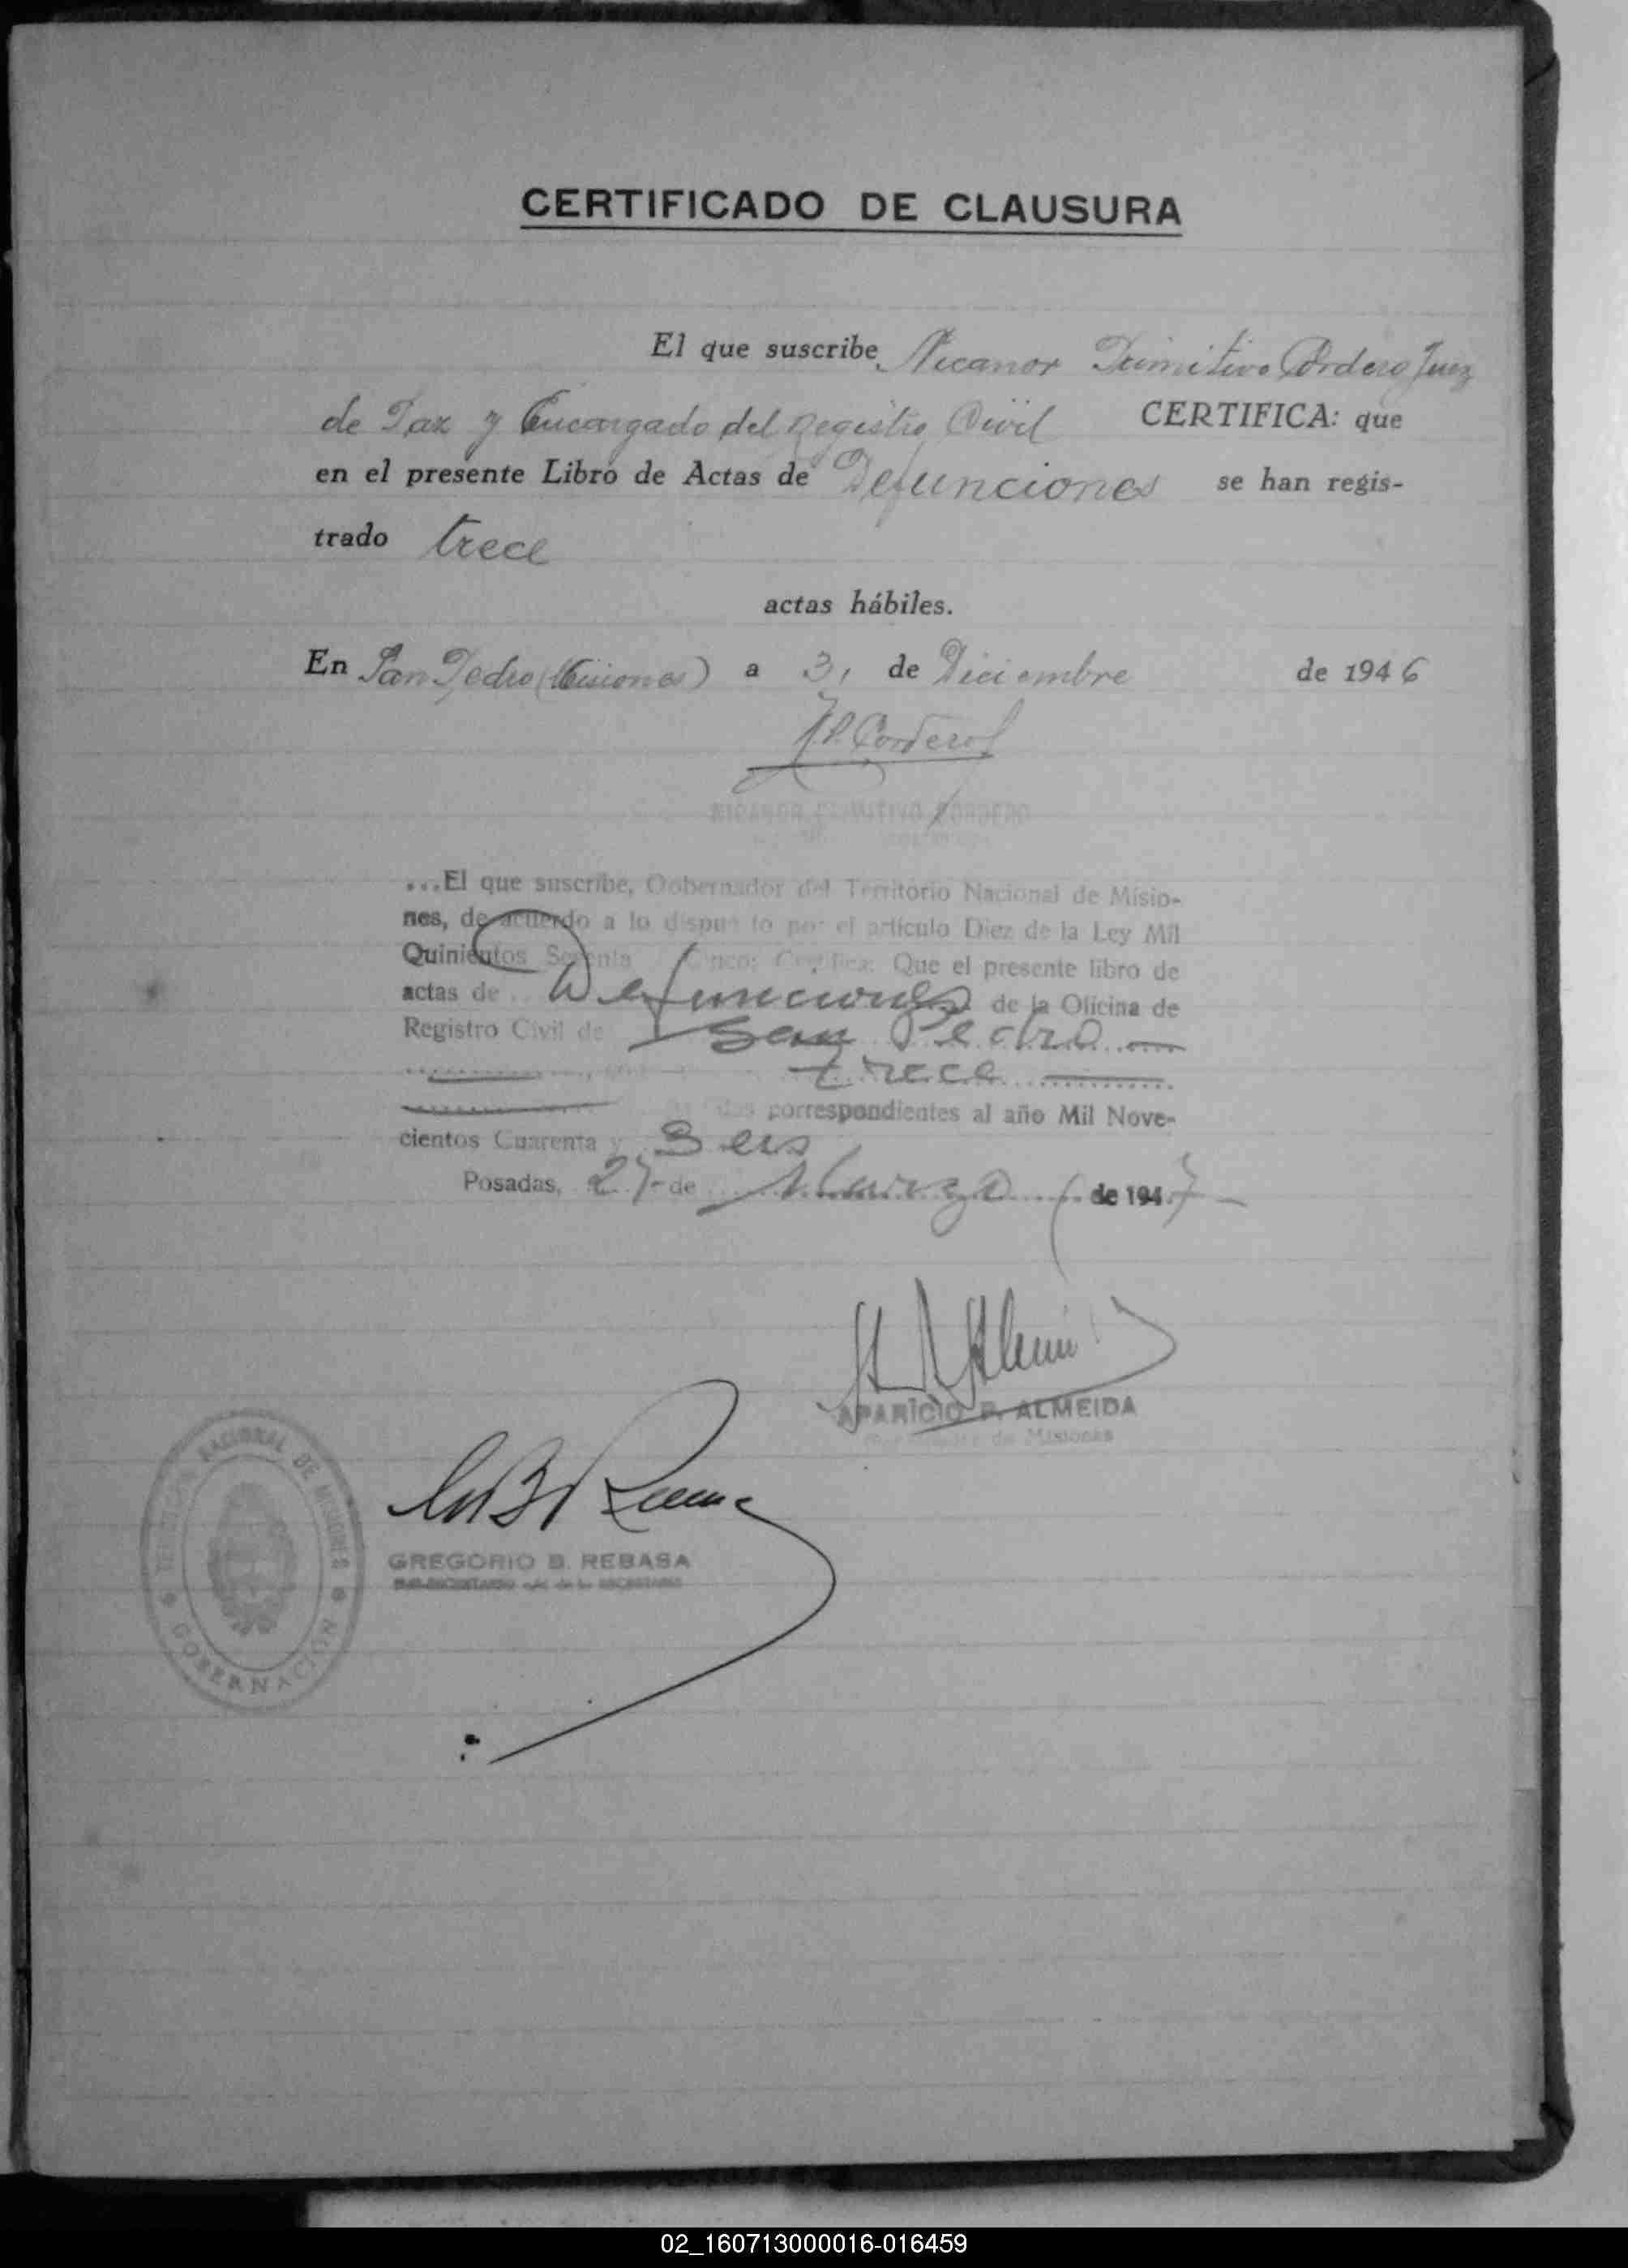 CERTIFICADO DE CLAUSURA
El que suscribe Nicanor Primitivo Cordero Juez
de Paz y Encargado del Registro Civil CERTIFICA: que
en el presente Libro de Actas de Defunciones se han regis-
trado trece
actas hábiles.
En San Pedro (Misiones) a 31 de Diciembre de 1946
N.P. Cordero
NICANOR PRIMITIVO CORDERO
...El que suscribe, Gobernador del Territorio Nacional de Misio-
nes, de acuerdo a lo dispuesto por el artículo Diez de la Ley Mil
Quinientos Sesenta Cinco: Certifica: Que el presente libro de
actas de Defunciones de la Oficina de
Registro Civil de San Pedro
trece
correspondientes al año Mil Nove-
cientos Cuarenta y Seis
Posadas, 27 de Marzo de 1947
APARICIO P. ALMEIDA
de Misiones
GREGORIO B. REBASA
TERRITORIO NACIONAL DE MISIONES
GOBERNACIÓN
02_160713000016-016459